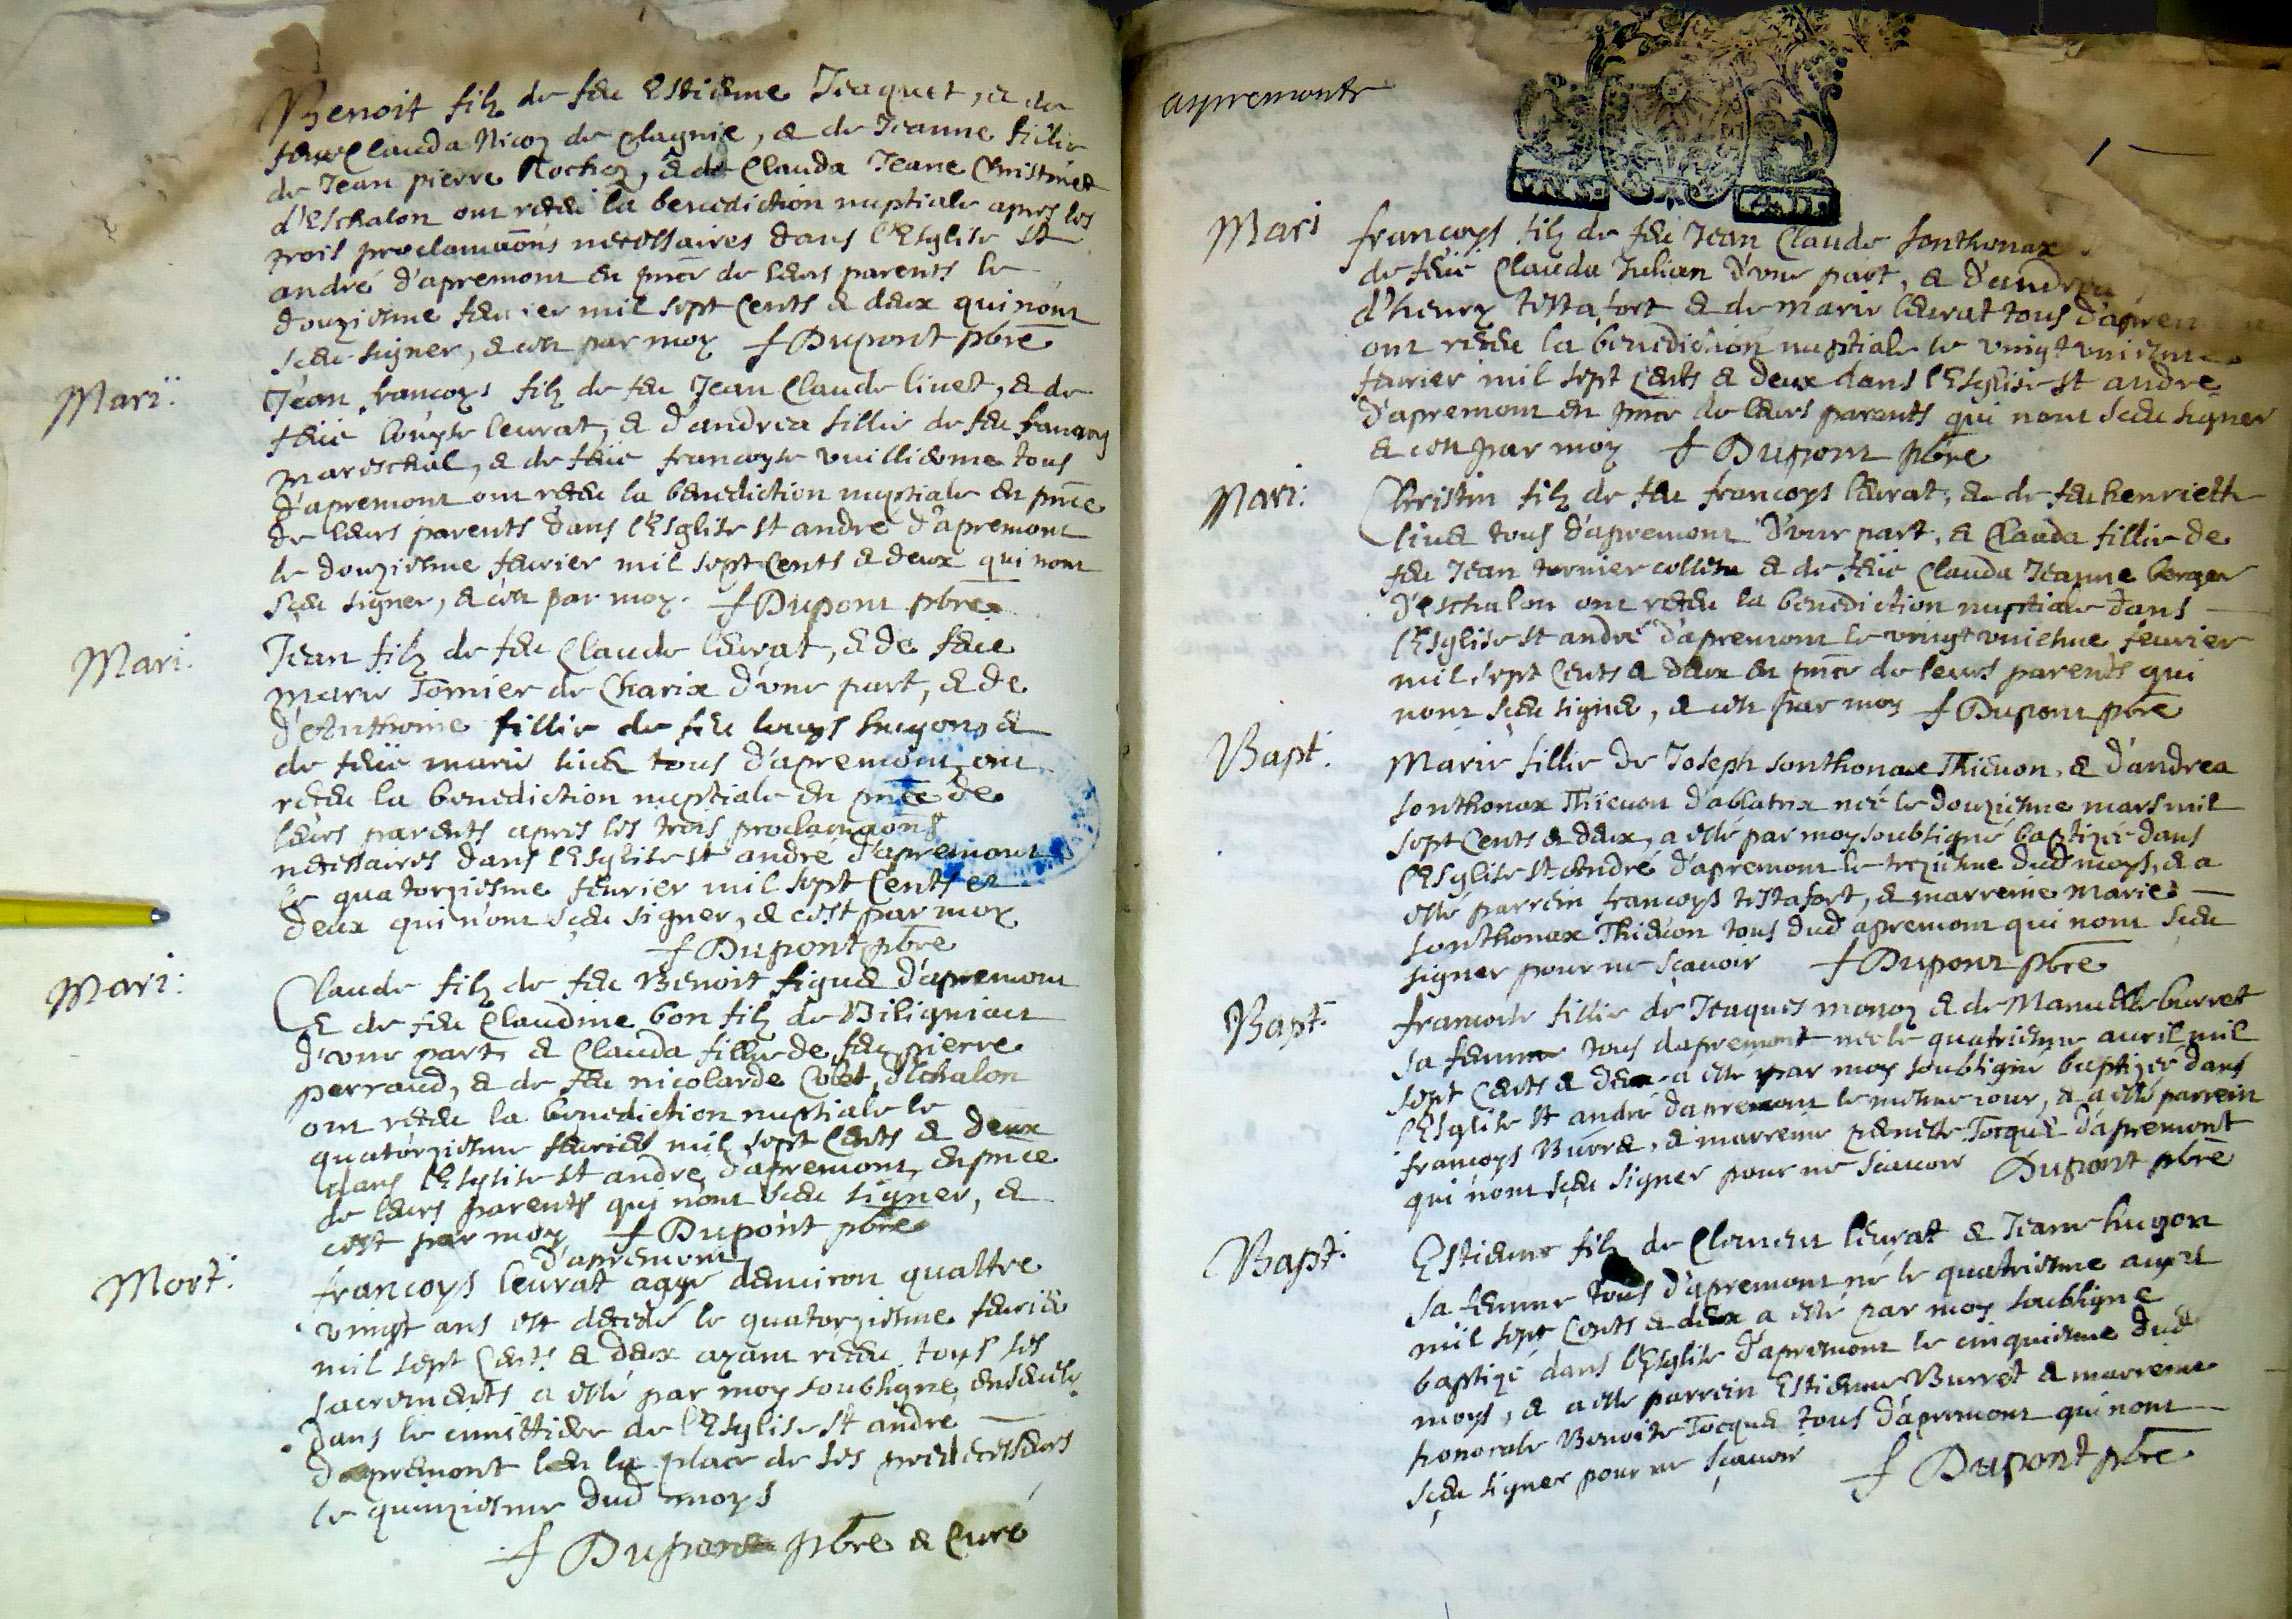 Benoit filz de feu Estienne Jeaquet, & de
feue Clauda Nicoz de Clagnie, & de Jeanne fillie
de Jean pierre Rochez, & de Clauda Jeane Christinet
d'Eschalon ont receu la benediction nuptiale apres les
trois proclamaõns necessaires dans l'Esglise St
andré d'apremont en pñce de leurs parents le
douziesme feurier mil sept Cents & deux qui n'ont
sceu signer, & c'est par moy f Dupont pbre
Mari:
Jean françoys filz de feu Jean Claude liuet, & de
feüe louyse leurat, & d'andrea fillie de feu françoy
mareschal, & de feüe françoyse vuilliome tous
d'apremont ont receu la benediction nuptiale en pñce
de leurs parents dans l'Esglise st andre d'apremont
le douziesme feurier mil sept Cents & deux qui nont
sceu signer, & c'est par moy. f Dupont pbre
Mari:
Jean filz de feu Claude leurat, & de feüe
marie Tornier de Charix d'vne part, & de
d'eAnthoine fillie de feu louys hugon, &
de feüe marie liuet tous d'apremont, ont
receu la benediction nuptiale en pñce de
leurs parents apres les trois proclamaõns
necessaires dans l'Esglise st andré d'apremont
le quatorziesme feurier mil sept Cents et
deux qui n'ont sceu signer, & c'est par moy
f Dupont pbre
Mari:
Claude filz de feu Benoit figuet d'apremont
& de feu Claudine bon filz de Biligniat
d'vne part, & Clauda fillie de feu pierre
perraud, & de feu nicolarde Cobet, d'Echalon
ont receu la benediction nuptiale le
quatorziesme feurier mil sept Cents & deux
dans l'Esglise st andre d'apremont, en pñce
de leurs parents qui n'ont sceu signer, &
c'est par moy f Dupont pbre
Mort:
d'apremont
françoys leurat agge d'enuiron quattre
vingt ans est decedé le quatorziesme feurier
mil sept Cents & deux ayant receu tous ses
sacrements a esté par moy soubsigné enseuely
dans le cimittiere de l'Esglise st andre
d'apremont leu la place de ses predecesseurs
le quinziesme dud moys
f Dupont pbre & Curé
aspremont
Mari
françoys filz de feu Jean Claude sonthonax
de feüe Clauda Julian d'vne part, & d'andrea
d'henry testafort & de marie leurat tous d'apremont
ont receu la benediction nuptiale le vingt vniesme
feurier mil sept Cents & deux dans l'Esglise st andre
d'apremont en pñce de leurs parents qui nont sceu signer
& c'est par moy f Dupont pbre
Mari:
Christin filz de feu françoys leurat, & de feu henriette
liuet tous d'apremont d'vne part, & Clauda fillie de
feu Jean tornier collitu & de feüe Clauda Jeanne berger
d'eschalon ont receu la benediction nuptiale dans
l'Esglise st andré d'apremont le vingt vniesme feurier
mil sept Cents & deux en pñce de leurs parents qui
nont sceu signer, & c'est par moy f Dupont pbre
Bapt:
Marie fillie de Joseph sonthonax Thieuon, & d'andrea
sonthonax Thieuon d'ablatrix neé le douziesme mars mil
sept Cents & deux, a esté par moy soubsigné baptizeé dans
l'Esglise st andré d'apremont le treziesme dud moys, & a
esté parrein françoys testafort, & marreine marie
sonthonax Thieuon tous dud apremont qui nont sceu
signer pour ne sçauoir f Dupont pbre
Bapt:
francoise fillie de Jeaques monoz & de Manuelle burret
sa femme tous dapremont neé le quatriesme auril mil
sept Cents & deux a esté par moy soubsigné baptizeé dans
l'Esglise st andré dapremont le mesme iour, & a esté parrein
françoys Burret, & marreine pernette Tocquet d'apremont
qui n'ont sceu signer pour ne scauoir Dupont pbre
Bapt:
Estienne filz de Clement leurat & Jeanne hugon
sa femme tous d'apremont né le quatriesme auril
mil sept Cents & deux a esté par moy soubsigne
baptizé dans l'Esglise d'apremont le cinquiesme dud
moys, & a esté parrein Estienne Burret & marreine
honorable Benoite Tocquet tous d'apremont qui nont
sceu signer pour ne sçauoir f Dupont pbre